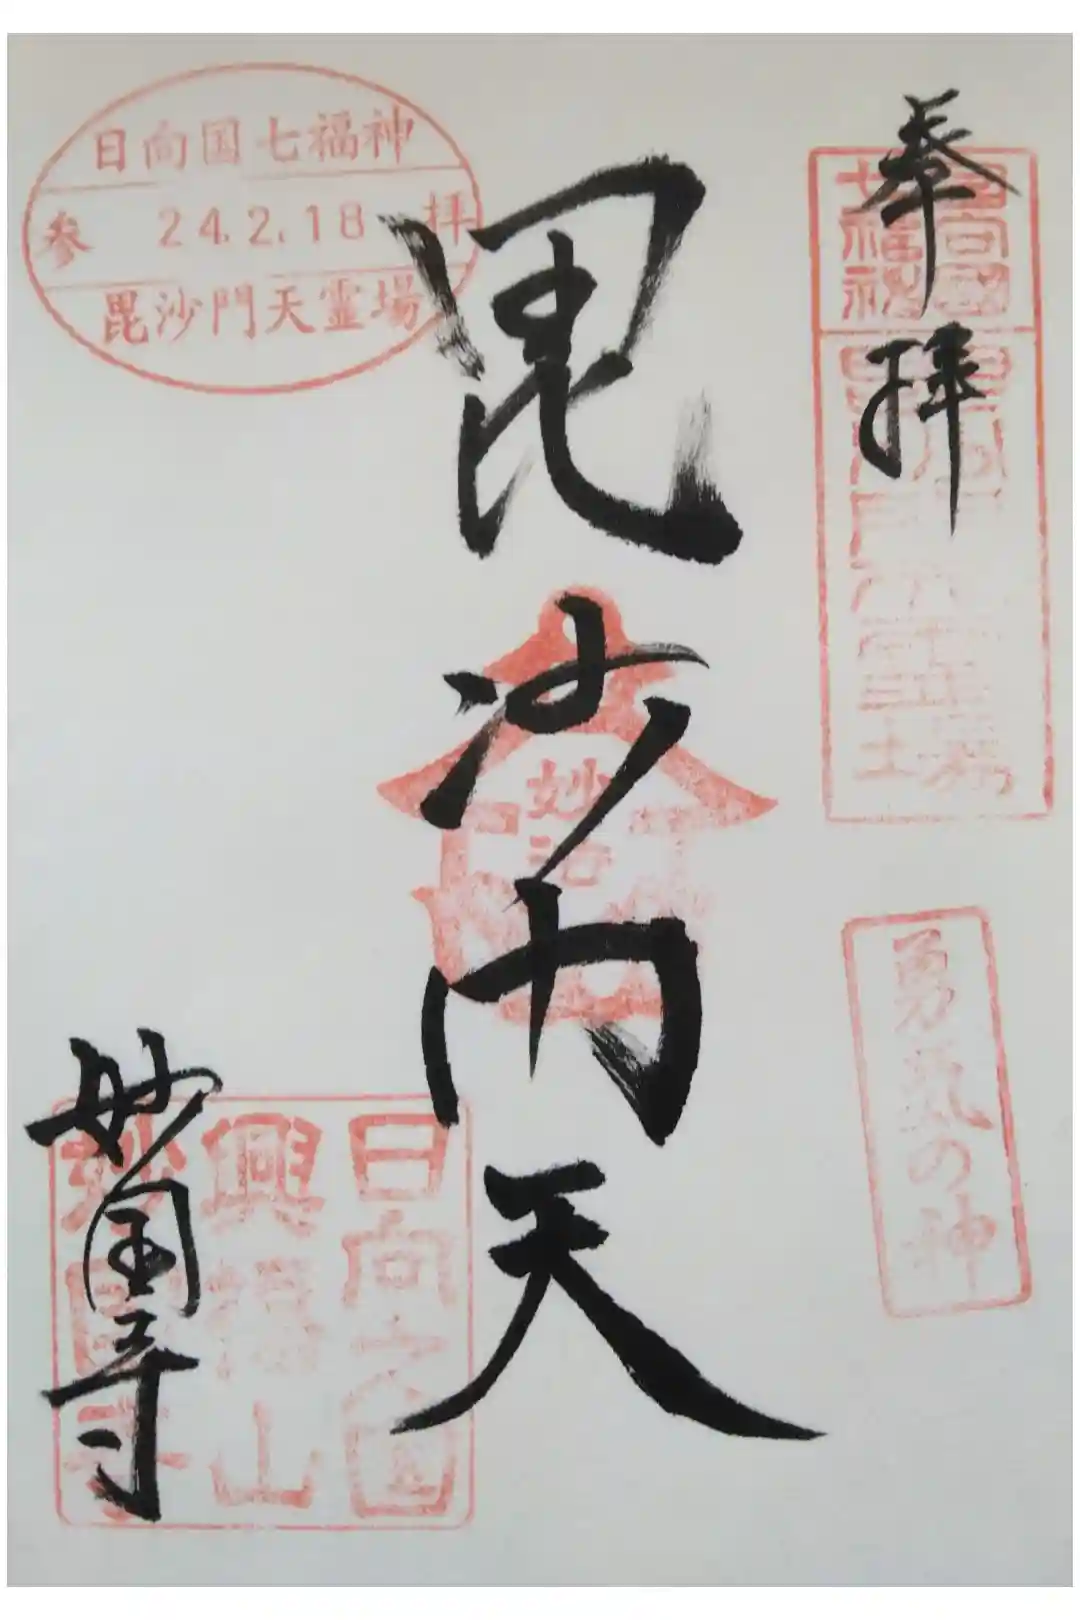 奉拝
日向國
七福神
毘沙門天霊場
勇気の神
毘沙門天
日向国七福神
参 24.2.18 拝
毘沙門天霊場
妙法
日向之国
興福山
妙国寺
妙国寺